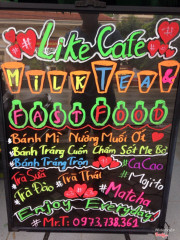 #Like Café
MiLK TEA &
FAST FOOD
#Bánh Mì Nướng Muối Ớt
#Bánh Tráng Cuốn Chấm Sốt Me Bò
#Bánh Tráng Trộn #CaCao
#Trà Sữa #Trà Thái #Mojito
#Trà Đào #Matcha
Enjoy Everyday
#Mr.T: 0973.738.361